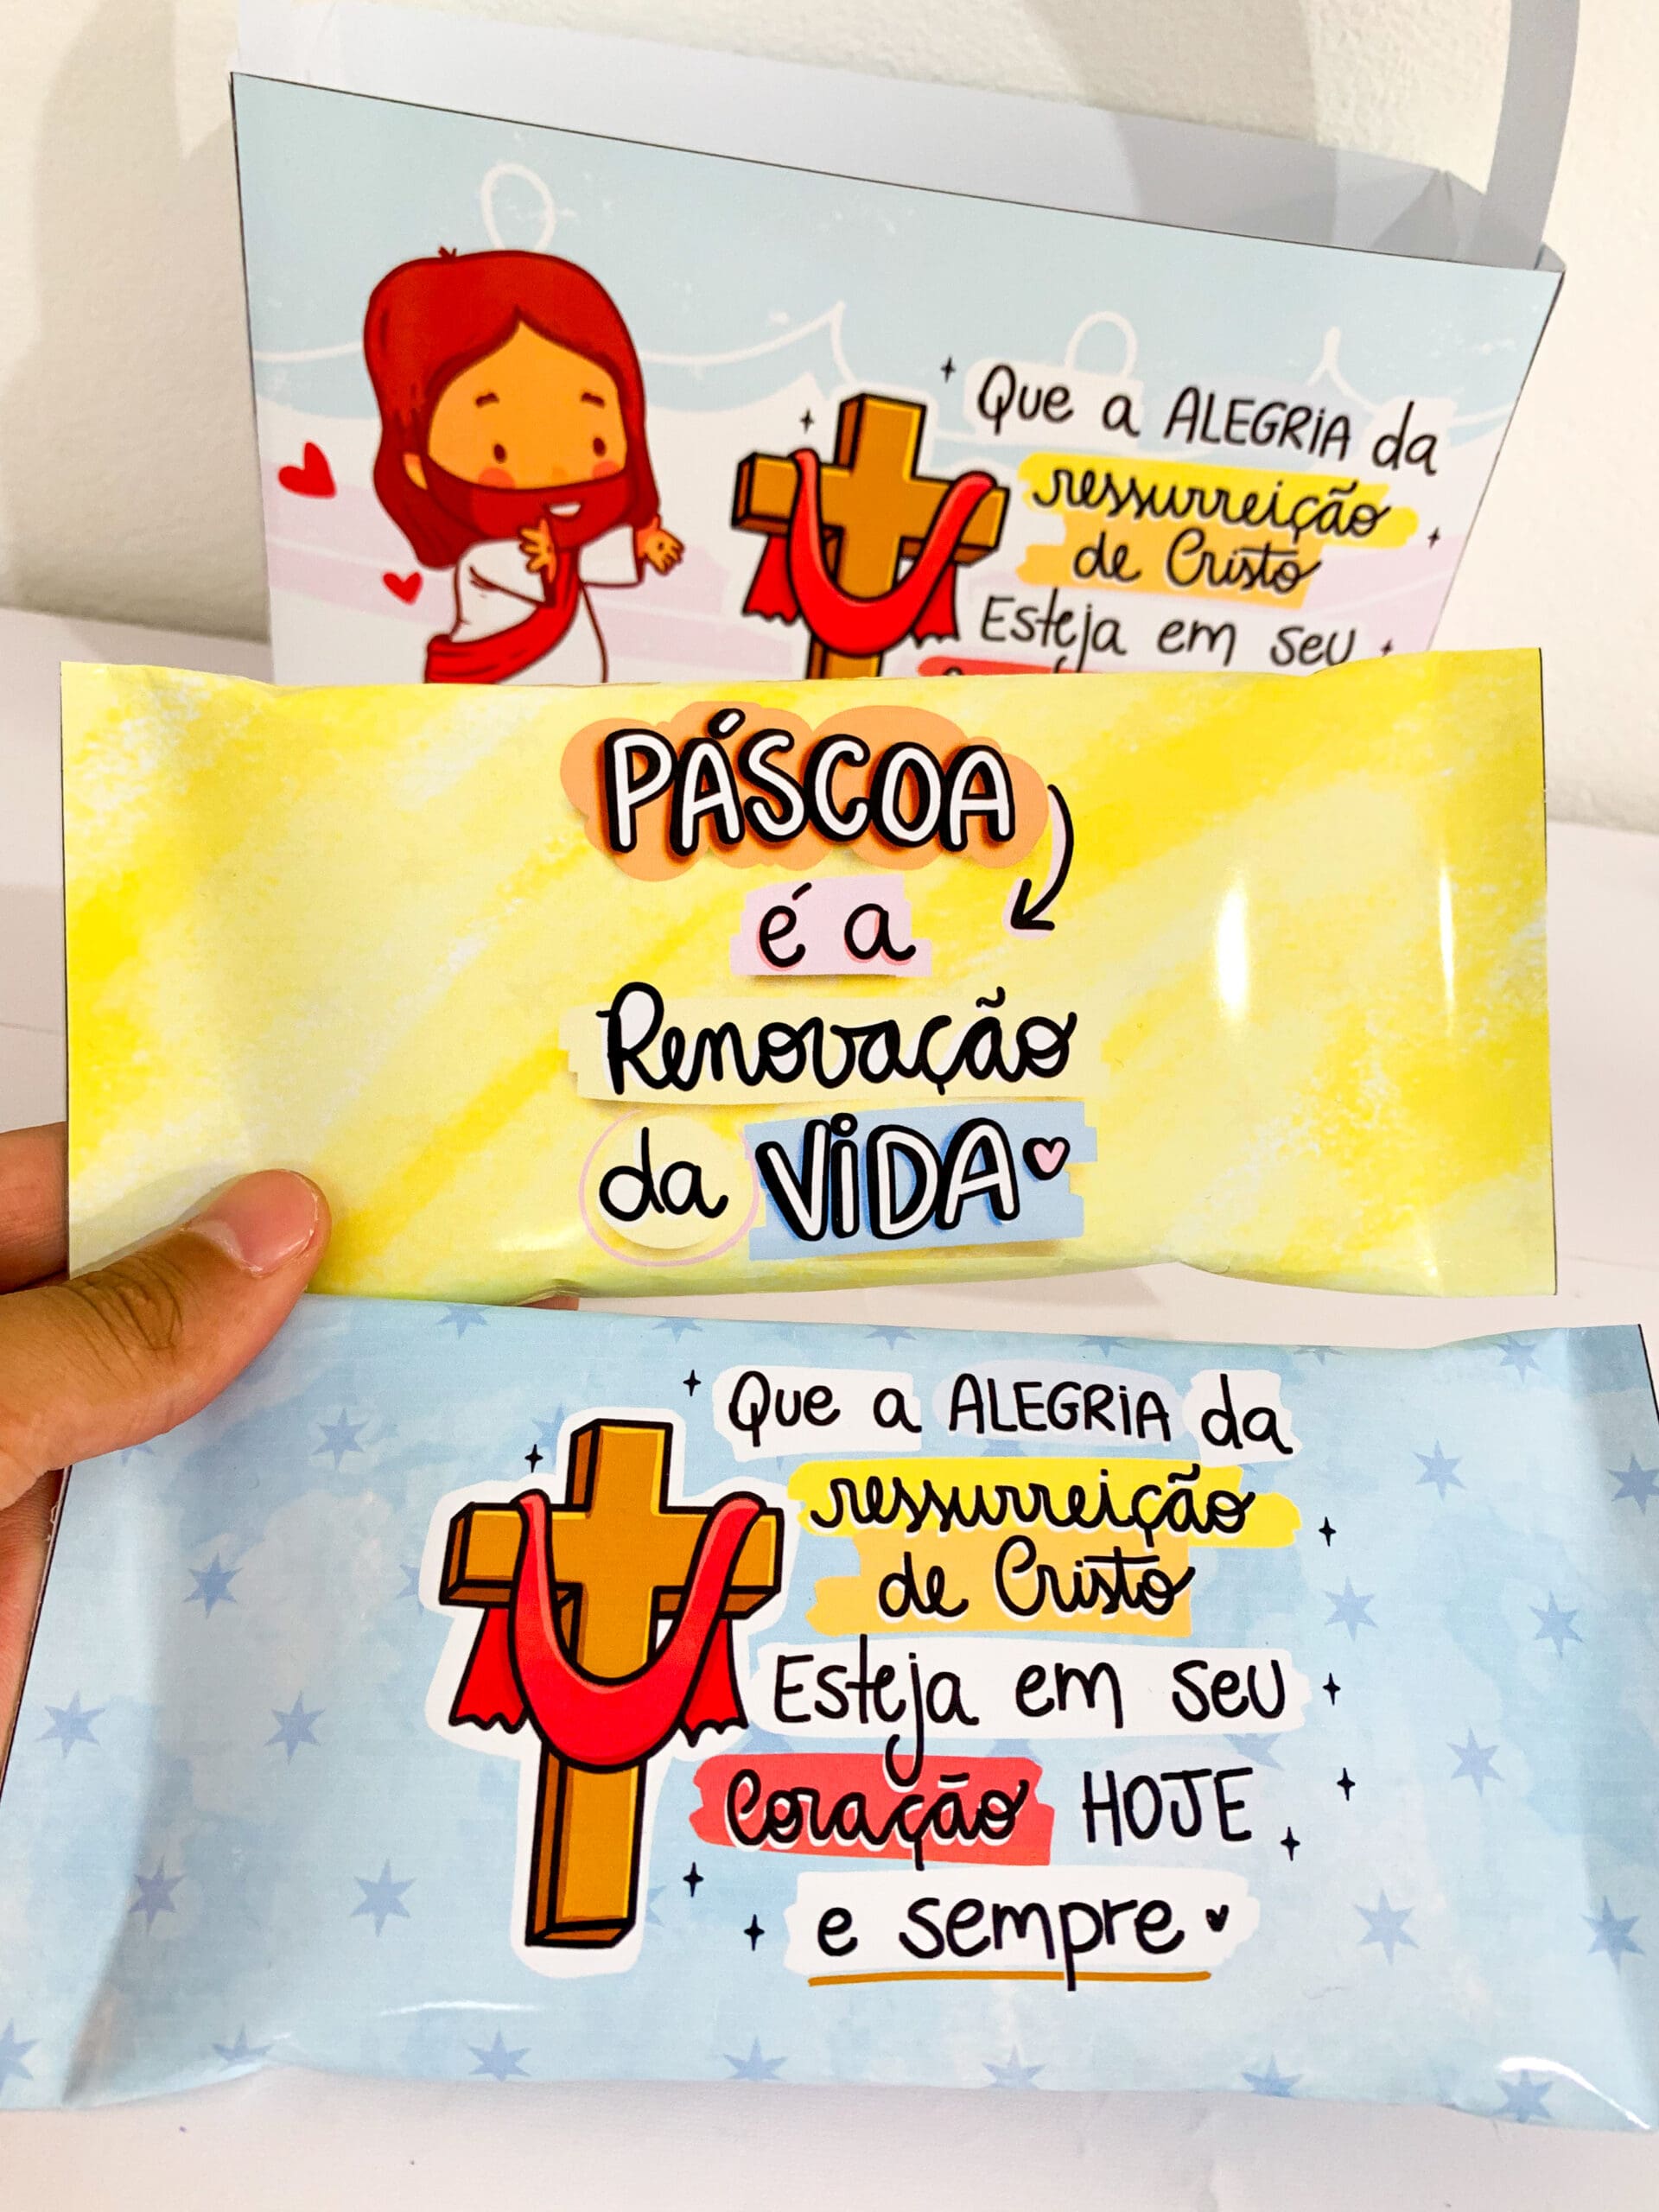 Que a ALEGRiA da
ressurreição
de Cristo
Esteja em seu
PÁSCOA
é a
Renovação
da ViDA
Que a ALEGRiA da
ressurreição
de Cristo
Esteja em seu
Coração HOJE
e sempre